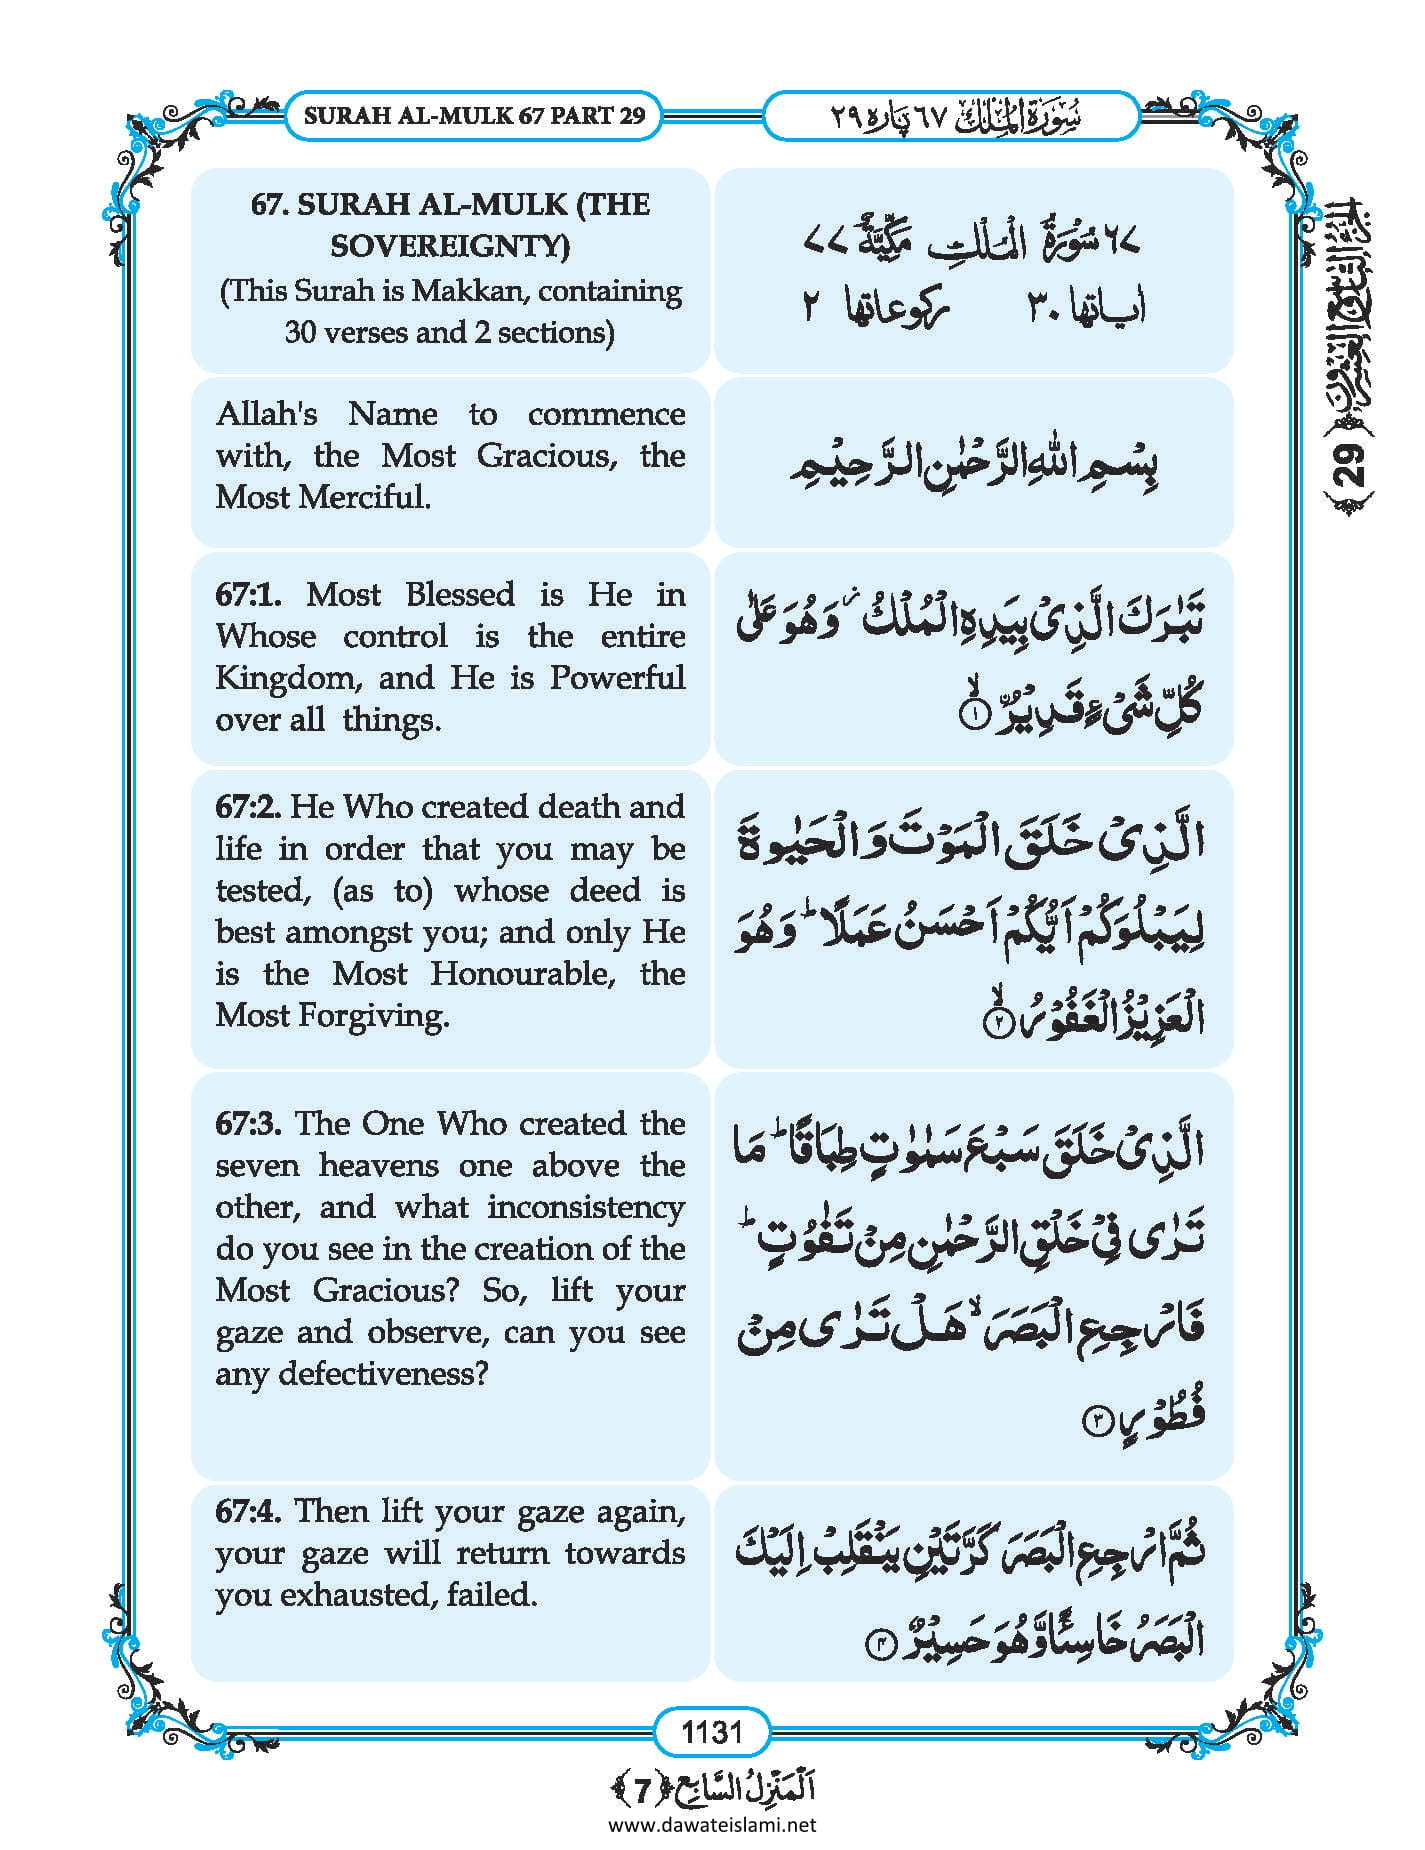 SURAH AL-MULK 67 PART 29
سُوْرَۃُ الْمُلْك ٦٧ پارہ ٢٩
67. SURAH AL-MULK (THE
SOVEREIGNTY)
(This Surah is Makkan, containing
30 verses and 2 sections)
٦٧ سُوْرَۃُ الْمُلْكِ مَكِّيَّۃٌ ٧٧
اٰياتها ٣٠ ركوعاتها ٢
Allah's Name to commence
with, the Most Gracious, the
Most Merciful.
بِسْمِ اللّٰهِ الرَّحْمٰنِ الرَّحِيْمِ
67:1. Most Blessed is He in
Whose control is the entire
Kingdom, and He is Powerful
over all things.
تَبٰرَكَ الَّذِیْ بِیَدِهِ الْمُلْكُ ؗ وَ هُوَ عَلٰى
كُلِّ شَیْءٍ قَدِیْرُ ۙ ﴿١﴾
67:2. He Who created death and
life in order that you may be
tested, (as to) whose deed is
best amongst you; and only He
is the Most Honourable, the
Most Forgiving.
الَّذِیْ خَلَقَ الْمَوْتَ وَ الْحَیٰوةَ
لِیَبْلُوَكُمْ اَیُّكُمْ اَحْسَنُ عَمَلًا ؕ وَ هُوَ
الْعَزِیْزُ الْغَفُوْرُ ۙ ﴿٢﴾
67:3. The One Who created the
seven heavens one above the
other, and what inconsistency
do you see in the creation of the
Most Gracious? So, lift your
gaze and observe, can you see
any defectiveness?
الَّذِیْ خَلَقَ سَبْعَ سَمٰوٰتٍ طِبَاقًا ؕ مَا
تَرٰى فِیْ خَلْقِ الرَّحْمٰنِ مِنْ تَفٰوُتٍ ؕ
فَارْجِعِ الْبَصَرَ ۙ هَلْ تَرٰى مِنْ
فُطُوْرٍ ﴿٣﴾
67:4. Then lift your gaze again,
your gaze will return towards
you exhausted, failed.
ثُمَّ ارْجِعِ الْبَصَرَ كَرَّتَیْنِ یَنْقَلِبْ اِلَیْكَ
الْبَصَرُ خَاسِئًا وَّ هُوَ حَسِیْرٌ ﴿٤﴾
الجزء التاسع والعشرون
29
1131
اَلْمَنْزِلُ السَّابِع 7
www.dawateislami.net